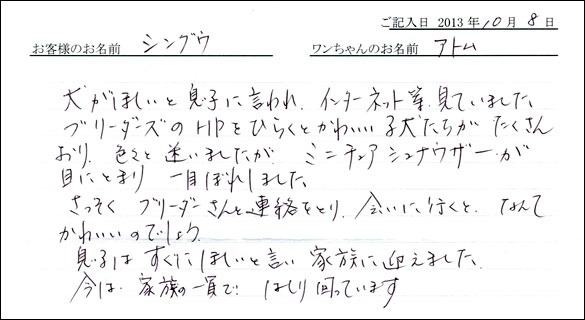 ご記入日 2013年10月8日
お客様のお名前 シングウ ワンちゃんのお名前 アトム
犬がほしいと息子に言われ、インターネット等、見ていました。
ブリーダーズのHPをひらくとかわいい子犬たちがたくさん
おり、色々と迷いましたが ミニチュアシュナウザーが
目にとまり 一目ぼれしました。
さっそく ブリーダーさんと連絡をとり、会いに行くと、なんて
かわいいのでしょう。
息子はすぐにほしいと言い 家族に迎えました。
今は、家族の一員で はしり回っています